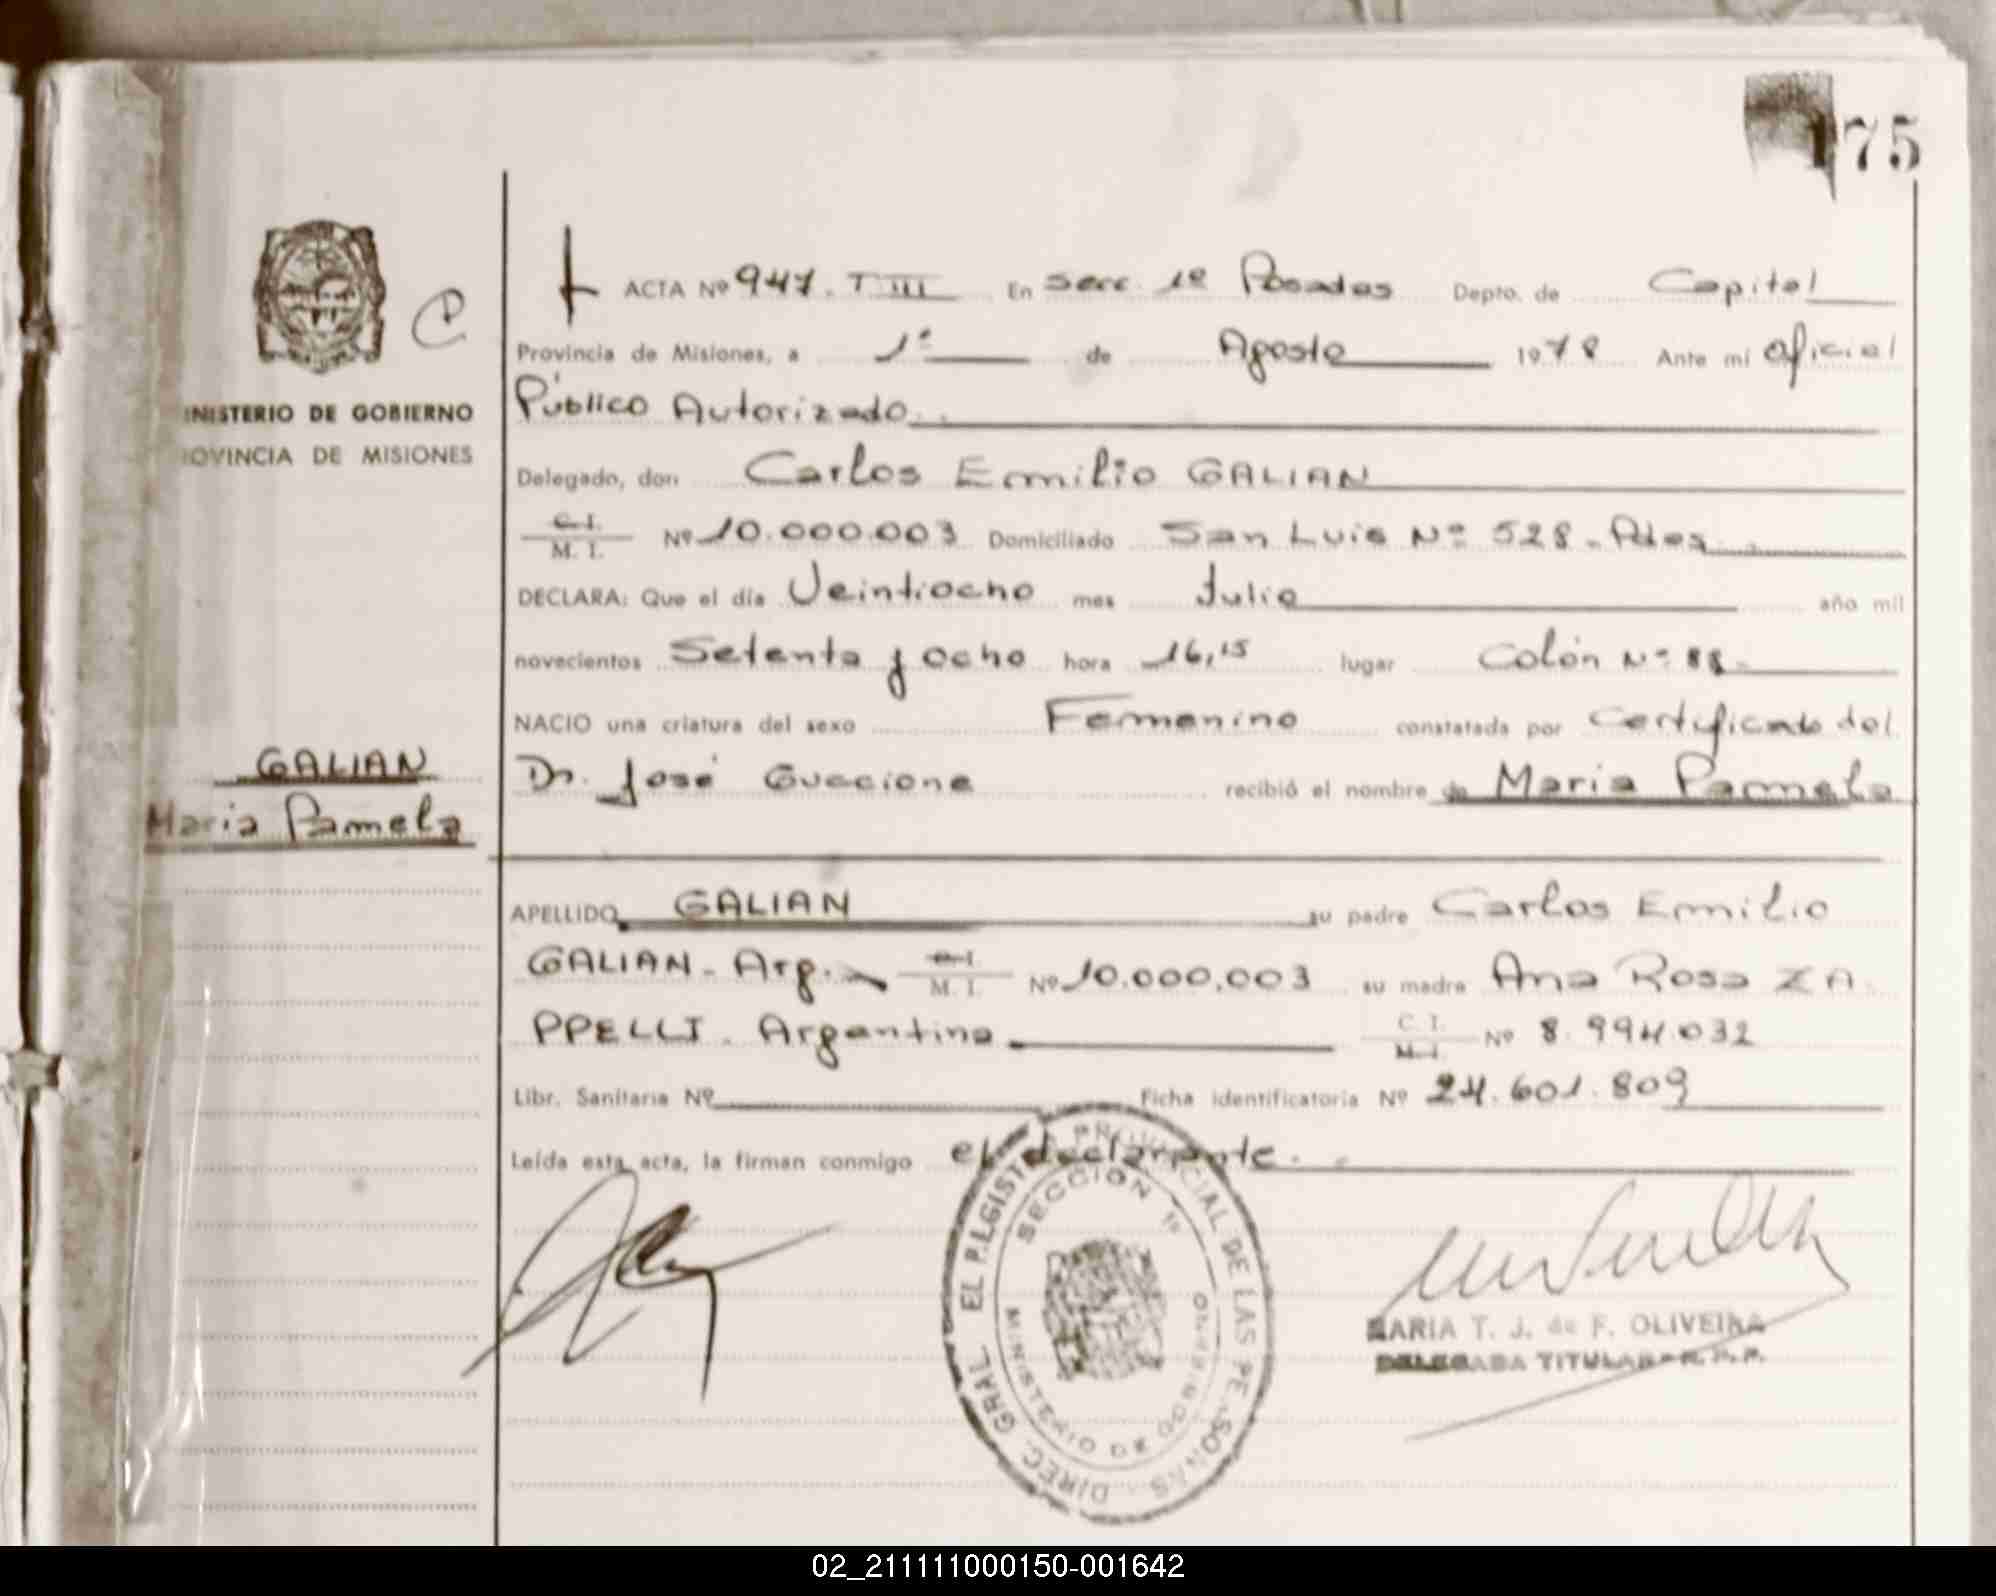 175
ACTA Nº 947. T III En Secc. 1º Posadas Depto. de Capital
Provincia de Misiones, a 1º de Agosto 1978 Ante mí Oficial
Público Autorizado.
INISTERIO DE GOBIERNO
OVINCIA DE MISIONES
Delegado, don Carlos Emilio GALIAN
C.I. M.I. Nº 10.000.003 Domiciliado San Luis Nº 528 - Pdas
DECLARA: Que el día Veintiocho mes Julio año mil
novecientos Setenta y ocho hora 16,15 lugar Colón Nº 88
NACIO una criatura del sexo Femenino constatada por Certificado del
Dr. José Guccione recibió el nombre de Maria Pamela
GALIAN
Maria Pamela
APELLIDO GALIAN su padre Carlos Emilio
GALIAN - Arg. C.I. M.I. Nº 10.000.003 su madre Ana Rosa ZA
PPELLI - Argentina C.I. M.I. Nº 8.994.032
Libr. Sanitaria Nº Ficha identificatoria Nº 24.601.809
Leída esta acta, la firman conmigo el declarante.
DIREC. GRAL. EL PROVINCIAL DE LAS PE SONAS
SECCION 1º
MINISTERIO DE GOBIERNO
MARIA T. J. de F. OLIVEIRA
DELEGADA TITULAR
02_211111000150-001642